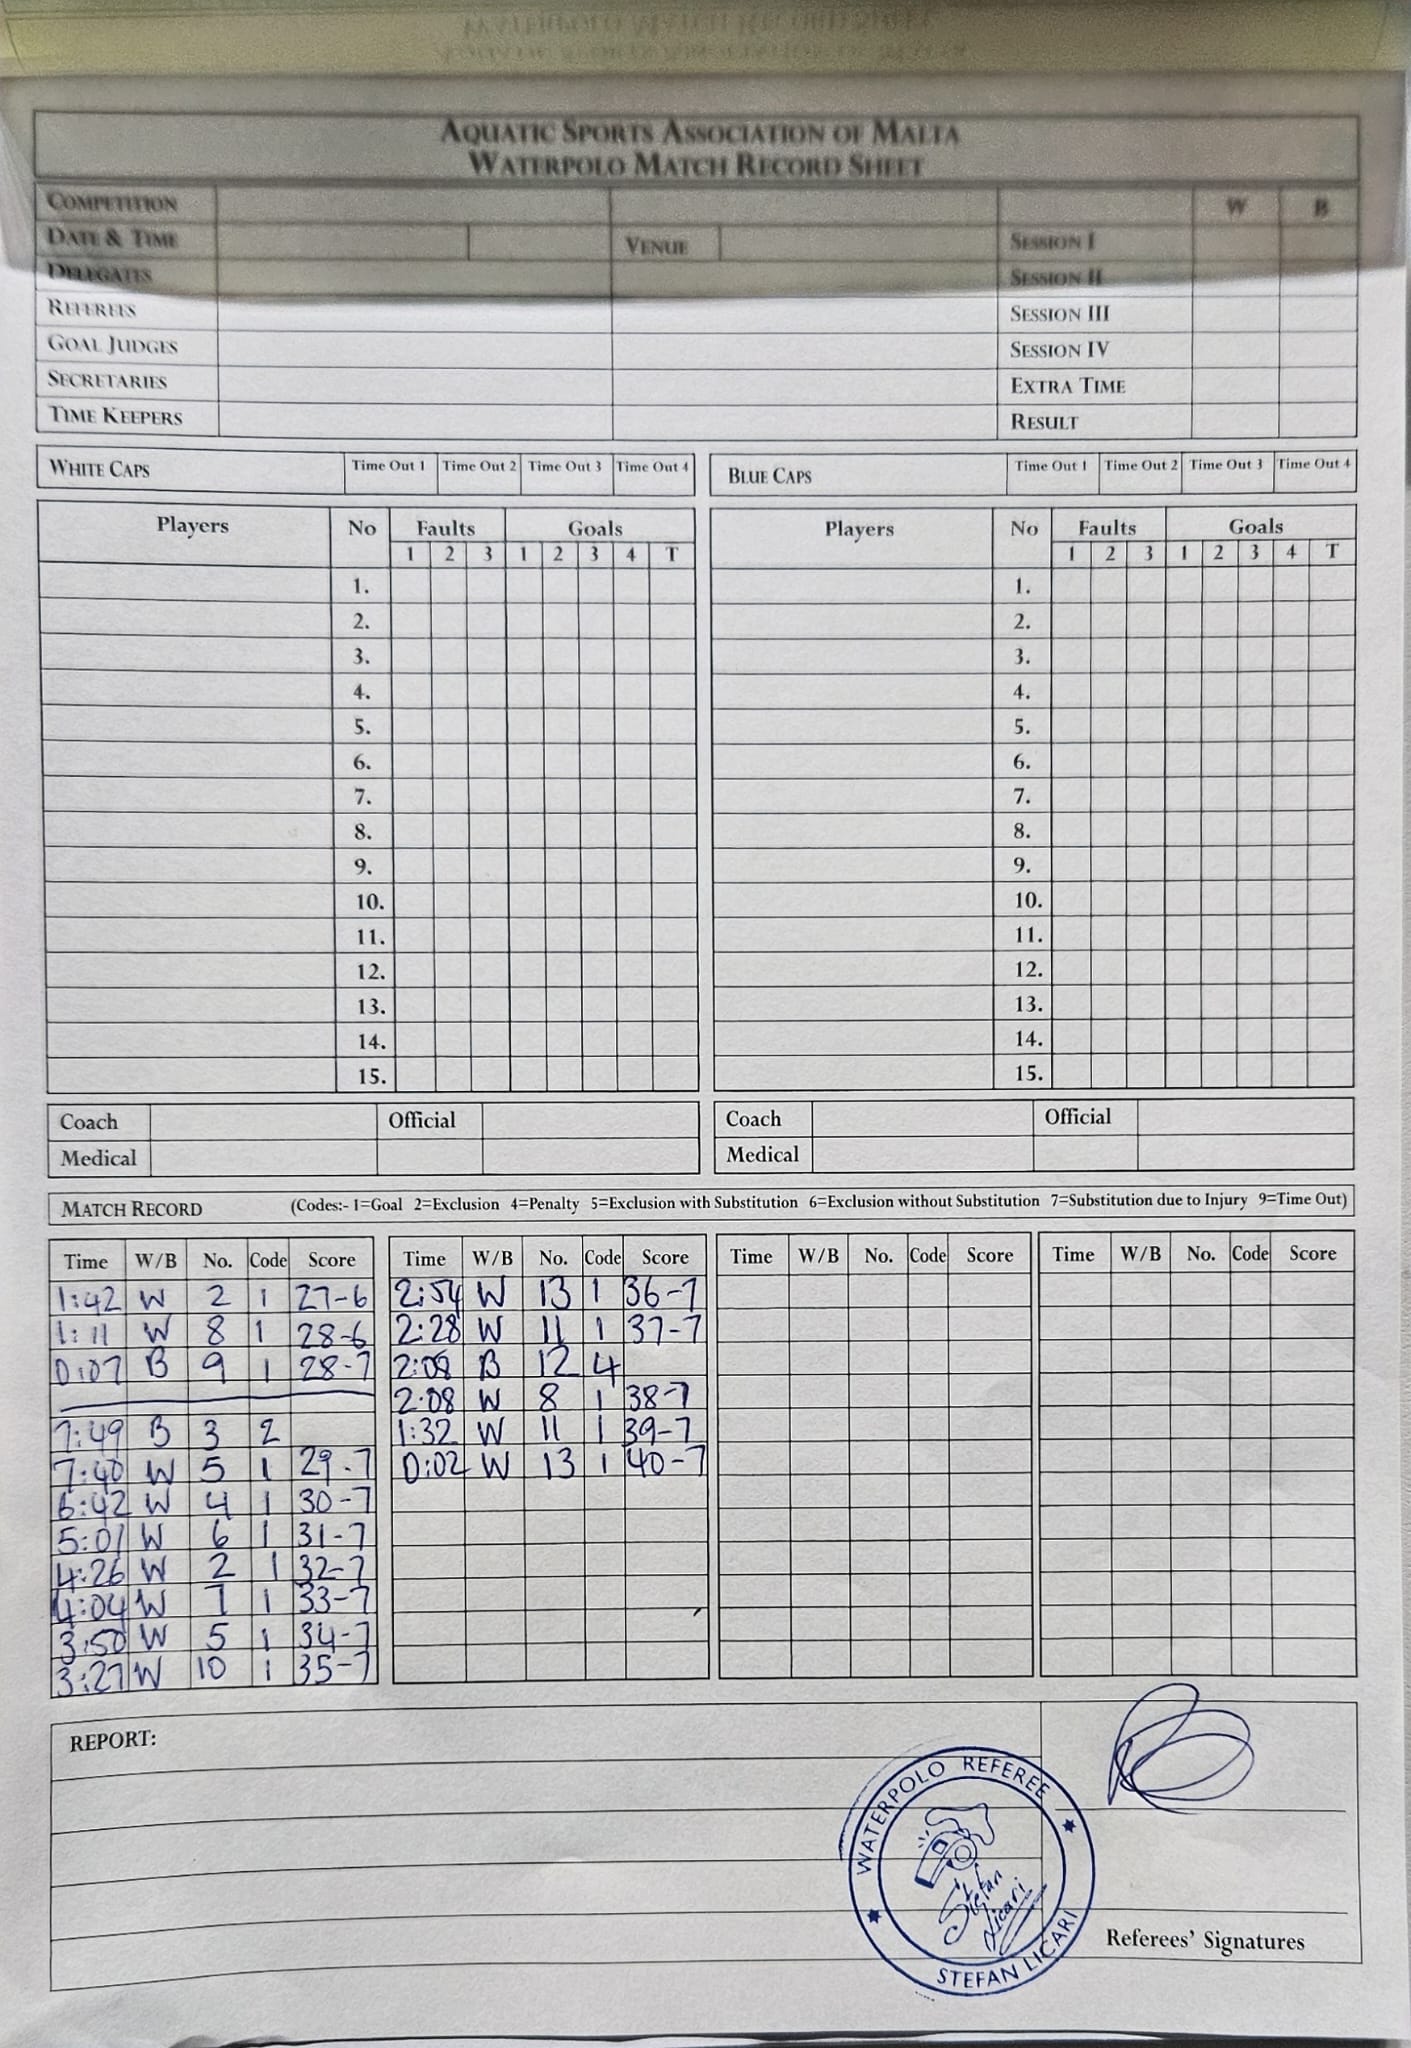 AQUATIC SPORTS ASSOCIATION OF MALTA
WATERPOLO MATCH RECORD SHEET
COMPETITION W B
DATE & TIME VENUE SESSION I
DELEGATES SESSION II
REFEREES SESSION III
GOAL JUDGES SESSION IV
SECRETARIES EXTRA TIME
TIME KEEPERS RESULT
WHITE CAPS Time Out 1 Time Out 2 Time Out 3 Time Out 4 BLUE CAPS Time Out 1 Time Out 2 Time Out 3 Time Out 4
Players No Faults Goals Players No Faults Goals
1 2 3 1 2 3 4 T 1 2 3 1 2 3 4 T
1. 1.
2. 2.
3. 3.
4. 4.
5. 5.
6. 6.
7. 7.
8. 8.
9. 9.
10. 10.
11. 11.
12. 12.
13. 13.
14. 14.
15. 15.
Coach Official Coach Official
Medical Medical
MATCH RECORD (Codes:- 1=Goal 2=Exclusion 4=Penalty 5=Exclusion with Substitution 6=Exclusion without Substitution 7=Substitution due to Injury 9=Time Out)
Time W/B No. Code Score Time W/B No. Code Score Time W/B No. Code Score Time W/B No. Code Score
1:42 W 2 1 27-6 2:54 W 13 1 36-7
1:11 W 8 1 28-6 2:28 W 11 1 37-7
0:07 B 9 1 28-7 2:08 B 12 4
2:08 W 8 1 38-7
7:49 B 3 2 1:32 W 11 1 39-7
7:40 W 5 1 29-7 0:02 W 13 1 40-7
6:42 W 4 1 30-7
5:01 W 6 1 31-7
4:26 W 2 1 32-7
4:04 W 7 1 33-7
3:50 W 5 1 34-7
3:27 W 10 1 35-7
REPORT:
WATERPOLO REFEREE
Stefan
Licari
STEFAN LICARI
Referees' Signatures